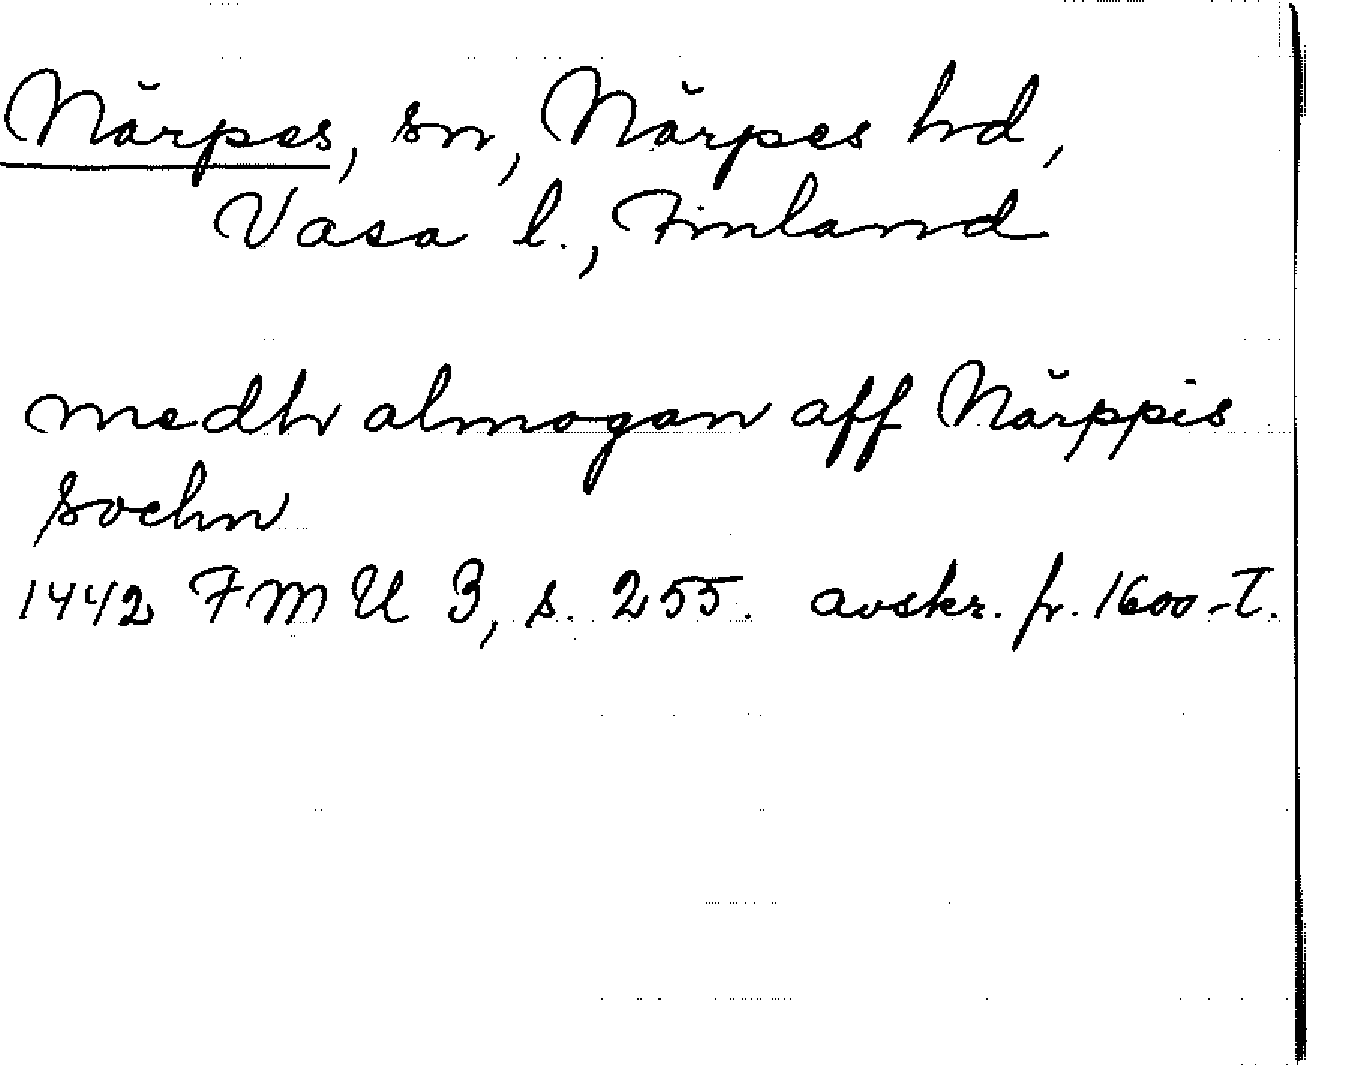 Närpes, sn, Närpes hd,
Vasa l., Finland
medh almogan aff Närppis
sochn
1442 FMU 3, s. 255. avskr. fr. 1600-T.